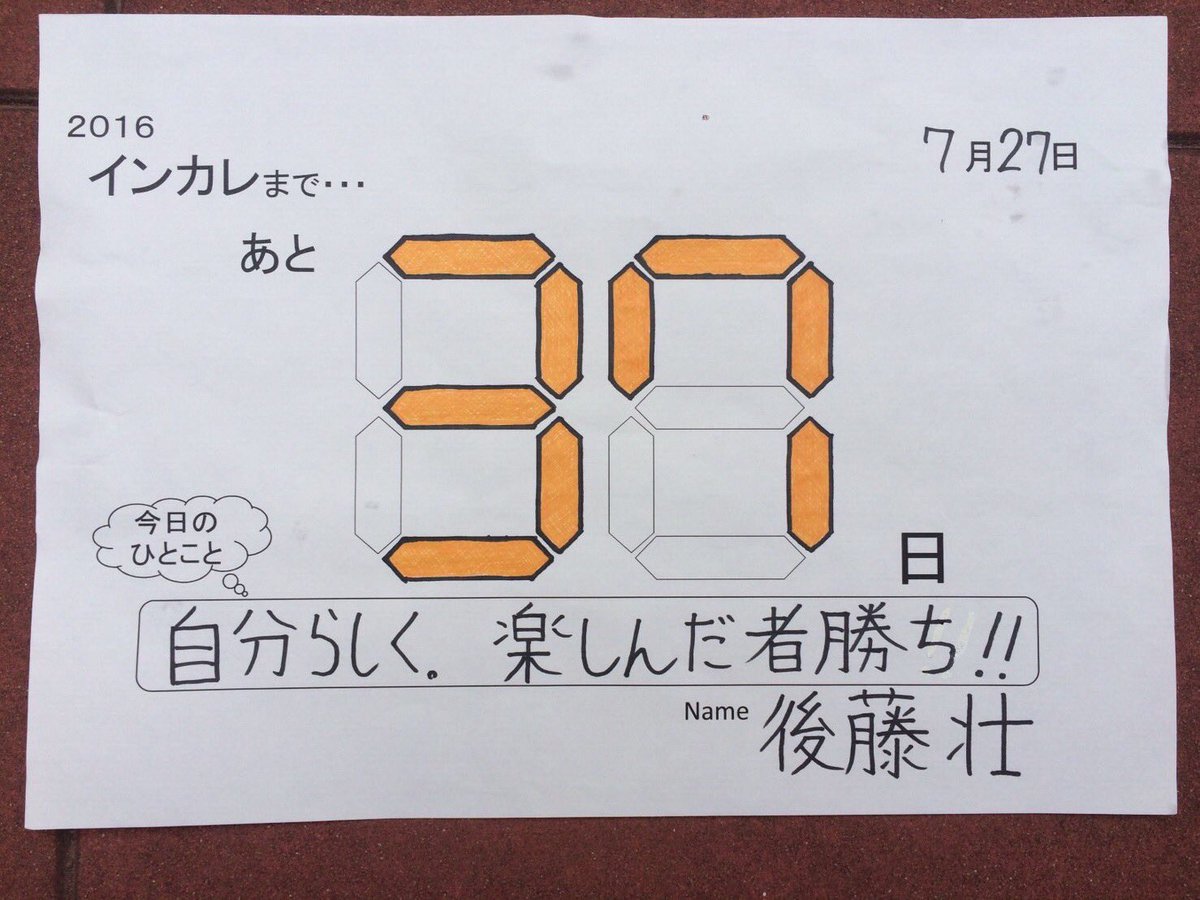 2016
インカレまで・・・
7月27日
あと
37
日
今日の
ひとこと
自分らしく。楽しんだ者勝ち!!
Name 後藤 壮